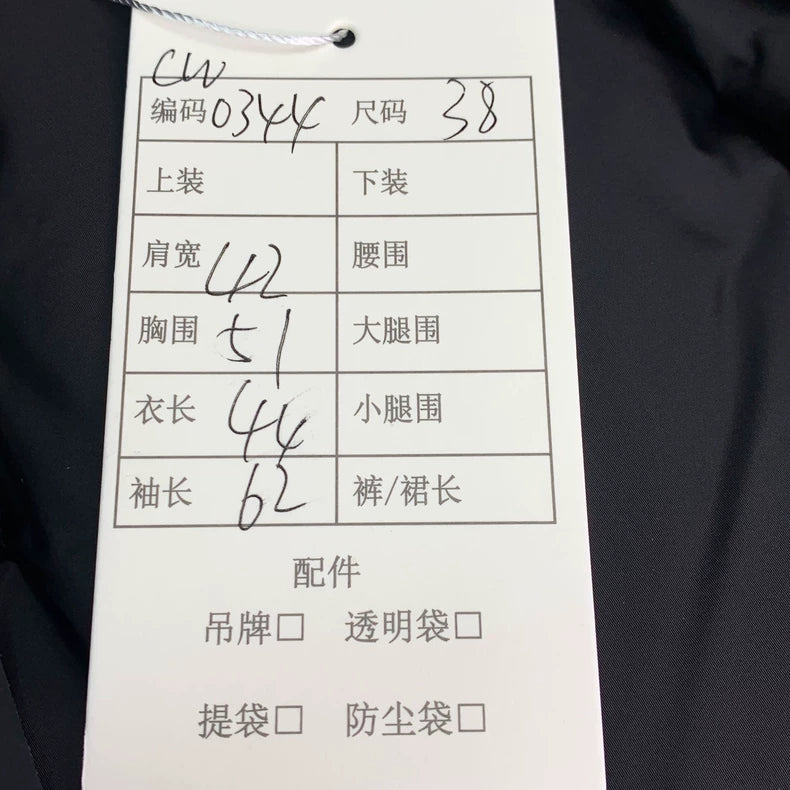 CW
编码 0344 尺码 38
上装 下装
肩宽 42 腰围
胸围 51 大腿围
衣长 44 小腿围
袖长 62 裤/裙长
配件
吊牌□ 透明袋□
提袋□ 防尘袋□